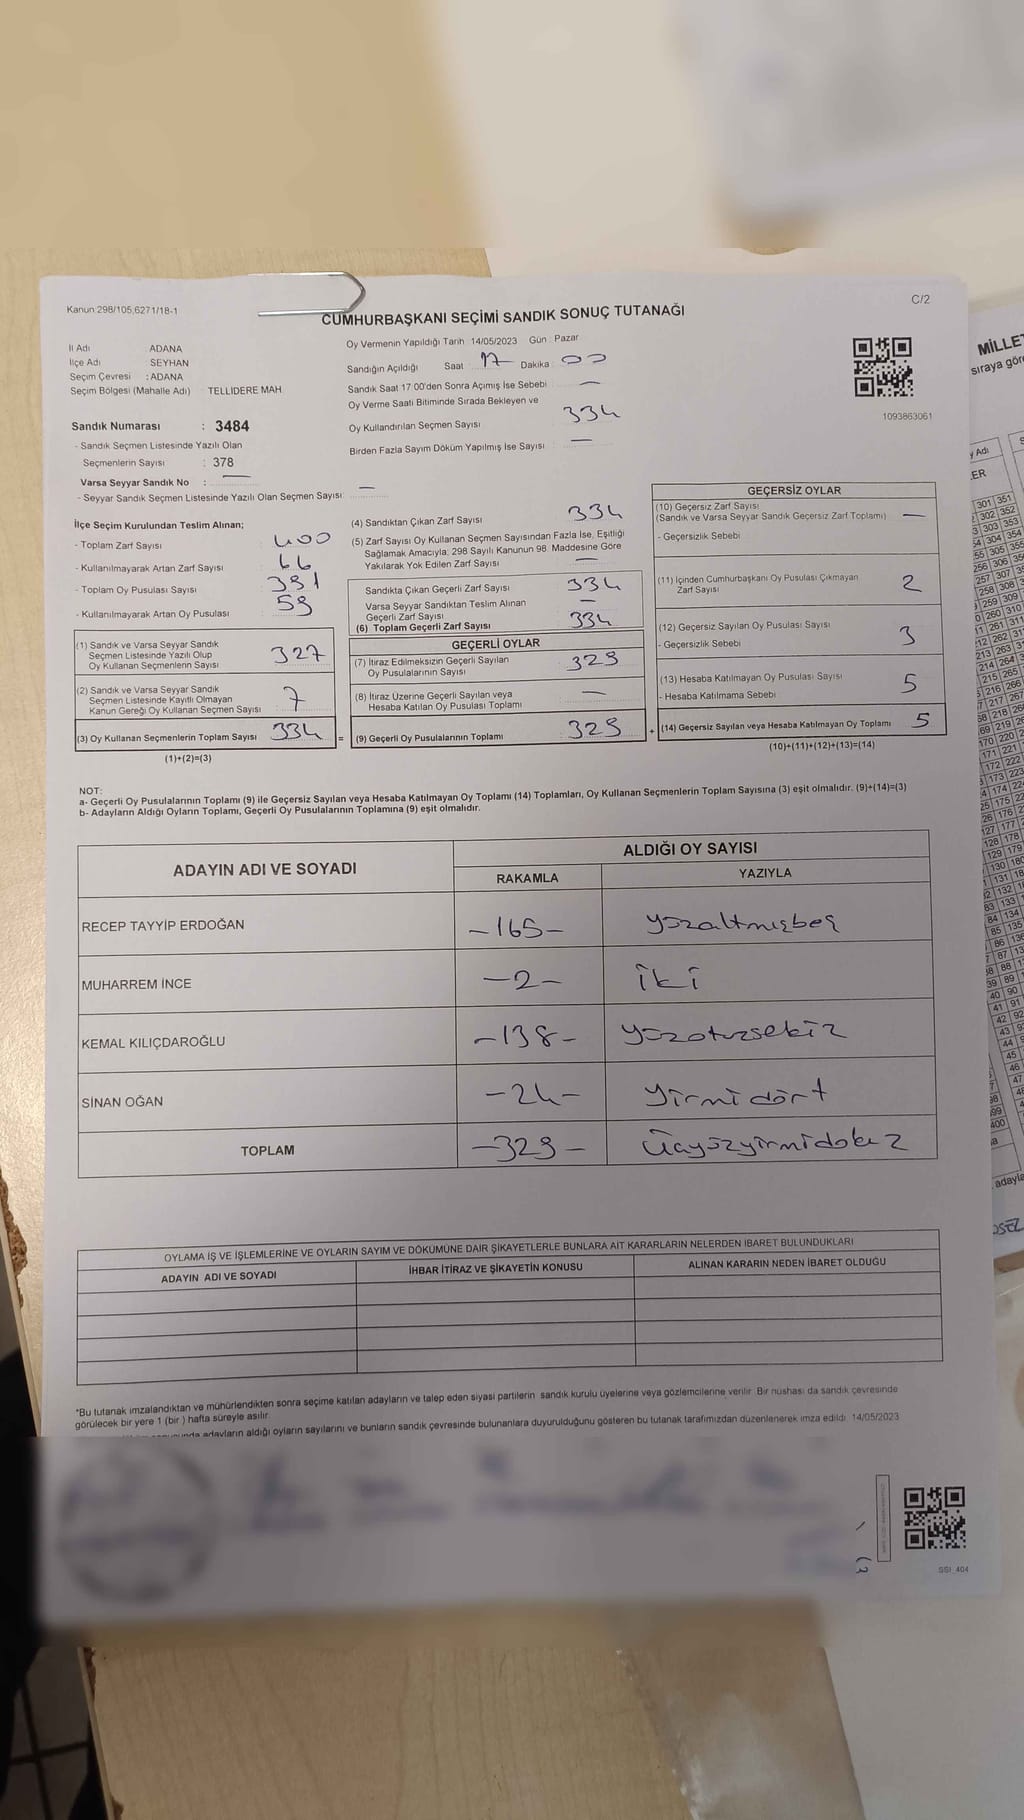 Kanun 298/105,6271/18-1
C/2
CUMHURBAŞKANI SEÇİMİ SANDIK SONUÇ TUTANAĞI
İl Adı ADANA
İlçe Adı SEYHAN
Seçim Çevresi : ADANA
Seçim Bölgesi (Mahalle Adı) TELLIDERE MAH.
Sandık Numarası : 3484
- Sandık Seçmen Listesinde Yazılı Olan
Seçmenlerin Sayısı : 378
Varsa Seyyar Sandık No : —
- Seyyar Sandık Seçmen Listesinde Yazılı Olan Seçmen Sayısı: —
Oy Vermenin Yapıldığı Tarih 14/05/2023 Gün : Pazar
Sandığın Açıldığı Saat 17 Dakika : 00
Sandık Saat 17:00'den Sonra Açımış İse Sebebi —
Oy Verme Saati Bitiminde Sırada Bekleyen ve
Oy Kullandırılan Seçmen Sayısı 334
Birden Fazla Sayım Döküm Yapılmış İse Sayısı —
1093863061
İlçe Seçim Kurulundan Teslim Alınan;
- Toplam Zarf Sayısı 400
- Kullanılmayarak Artan Zarf Sayısı 66
- Toplam Oy Pusulası Sayısı 391
- Kullanılmayarak Artan Oy Pusulası 59
(1) Sandık ve Varsa Seyyar Sandık
Seçmen Listesinde Yazılı Olup
Oy Kullanan Seçmenlerin Sayısı 327
(2) Sandık ve Varsa Seyyar Sandık
Seçmen Listesinde Kayıtlı Olmayan
Kanun Gereği Oy Kullanan Seçmen Sayısı 7
(3) Oy Kullanan Seçmenlerin Toplam Sayısı 334
(1)+(2)=(3)
=
(4) Sandıktan Çıkan Zarf Sayısı 334
(5) Zarf Sayısı Oy Kullanan Seçmen Sayısından Fazla İse, Eşitliği
Sağlamak Amacıyla; 298 Sayılı Kanunun 98. Maddesine Göre
Yakılarak Yok Edilen Zarf Sayısı —
Sandıkta Çıkan Geçerli Zarf Sayısı 334
Varsa Seyyar Sandıktan Teslim Alınan
Geçerli Zarf Sayısı —
(6) Toplam Geçerli Zarf Sayısı 334
GEÇERLİ OYLAR
(7) İtiraz Edilmeksizin Geçerli Sayılan
Oy Pusulalarının Sayısı 329
(8) İtiraz Üzerine Geçerli Sayılan veya
Hesaba Katılan Oy Pusulası Toplamı —
(9) Geçerli Oy Pusulalarının Toplamı 329
+
GEÇERSİZ OYLAR
(10) Geçersiz Zarf Sayısı
(Sandık ve Varsa Seyyar Sandık Geçersiz Zarf Toplamı) —
- Geçersizlik Sebebi
(11) İçinden Cumhurbaşkanı Oy Pusulası Çıkmayan
Zarf Sayısı 2
(12) Geçersiz Sayılan Oy Pusulası Sayısı 3
- Geçersizlik Sebebi
(13) Hesaba Katılmayan Oy Pusulası Sayısı 5
- Hesaba Katılmama Sebebi
(14) Geçersiz Sayılan veya Hesaba Katılmayan Oy Toplamı 5
(10)+(11)+(12)+(13)=(14)
NOT:
a- Geçerli Oy Pusulalarının Toplamı (9) ile Geçersiz Sayılan veya Hesaba Katılmayan Oy Toplamı (14) Toplamları, Oy Kullanan Seçmenlerin Toplam Sayısına (3) eşit olmalıdır. (9)+(14)=(3)
b- Adayların Aldığı Oyların Toplamı, Geçerli Oy Pusulalarının Toplamına (9) eşit olmalıdır.
ADAYIN ADI VE SOYADI
ALDIĞI OY SAYISI
RAKAMLA YAZIYLA
RECEP TAYYİP ERDOĞAN -165- yüzaltmışbeş
MUHARREM İNCE -2- iki
KEMAL KILIÇDAROĞLU -138- yüzotuzsekiz
SİNAN OĞAN -24- yirmi dört
TOPLAM -329- üçyüzyirmidokuz
OYLAMA İŞ VE İŞLEMLERİNE VE OYLARIN SAYIM VE DÖKÜMÜNE DAİR ŞİKAYETLERLE BUNLARA AİT KARARLARIN NELERDEN İBARET BULUNDUKLARI
ADAYIN ADI VE SOYADI İHBAR İTİRAZ VE ŞİKAYETİN KONUSU ALINAN KARARIN NEDEN İBARET OLDUĞU
*Bu tutanak imzalandıktan ve mühürlendikten sonra seçime katılan adayların ve talep eden siyasi partilerin sandık kurulu üyelerine veya gözlemcilerine verilir. Bir nüshası da sandık çevresinde
görülecek bir yere 1 (bir) hafta süreyle asılır.
adayların aldığı oyların sayılarını ve bunların sandık çevresinde bulunanlara duyurulduğunu gösteren bu tutanak tarafımızdan düzenlenerek imza edildi. 14/05/2023
SSI_404
MİLLET
sıraya göre